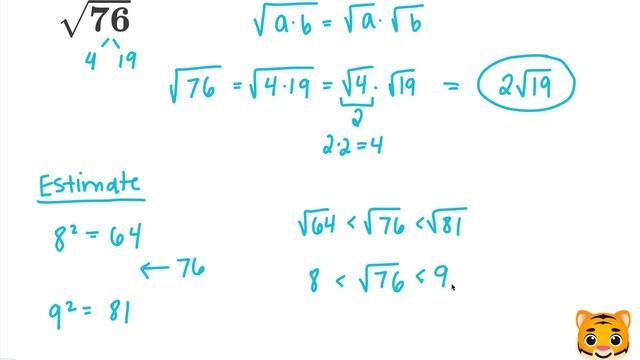 √76
4 19
√a·b = √a · √b
√76 = √4·19 = √4 · √19 = 2√19
2
2·2=4
Estimate
8² = 64
← 76
9² = 81
√64 < √76 < √81
8 < √76 < 9